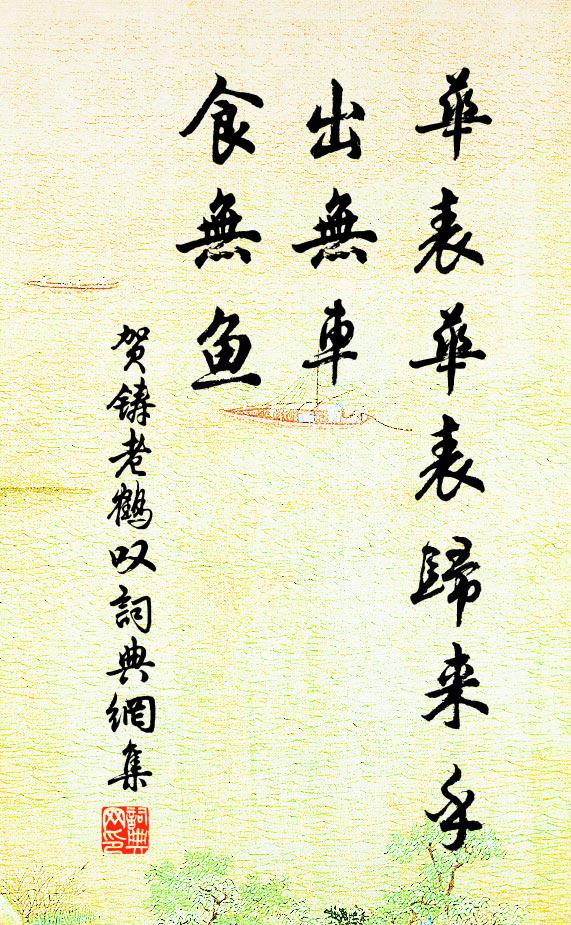 華表華表歸来乎
出無車
食無魚
贺鑄老鶴叹詞典網集
詞典网印